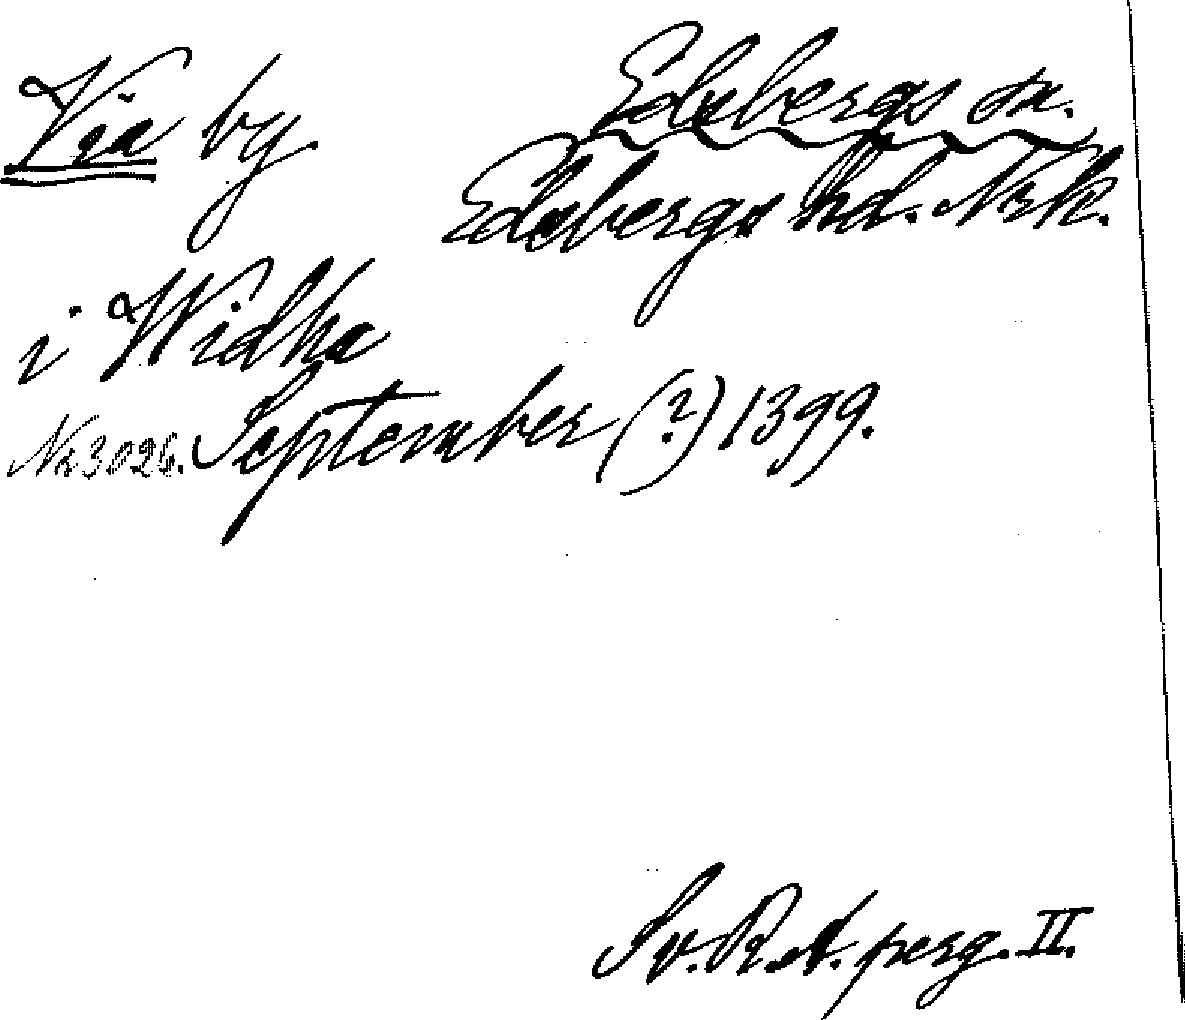 Via by. Edsbergs sn.
Edsbergs hd. Nrk.
i Widha
Nr 3026. September (?) 1399.
Sv. R. A. perg. II.